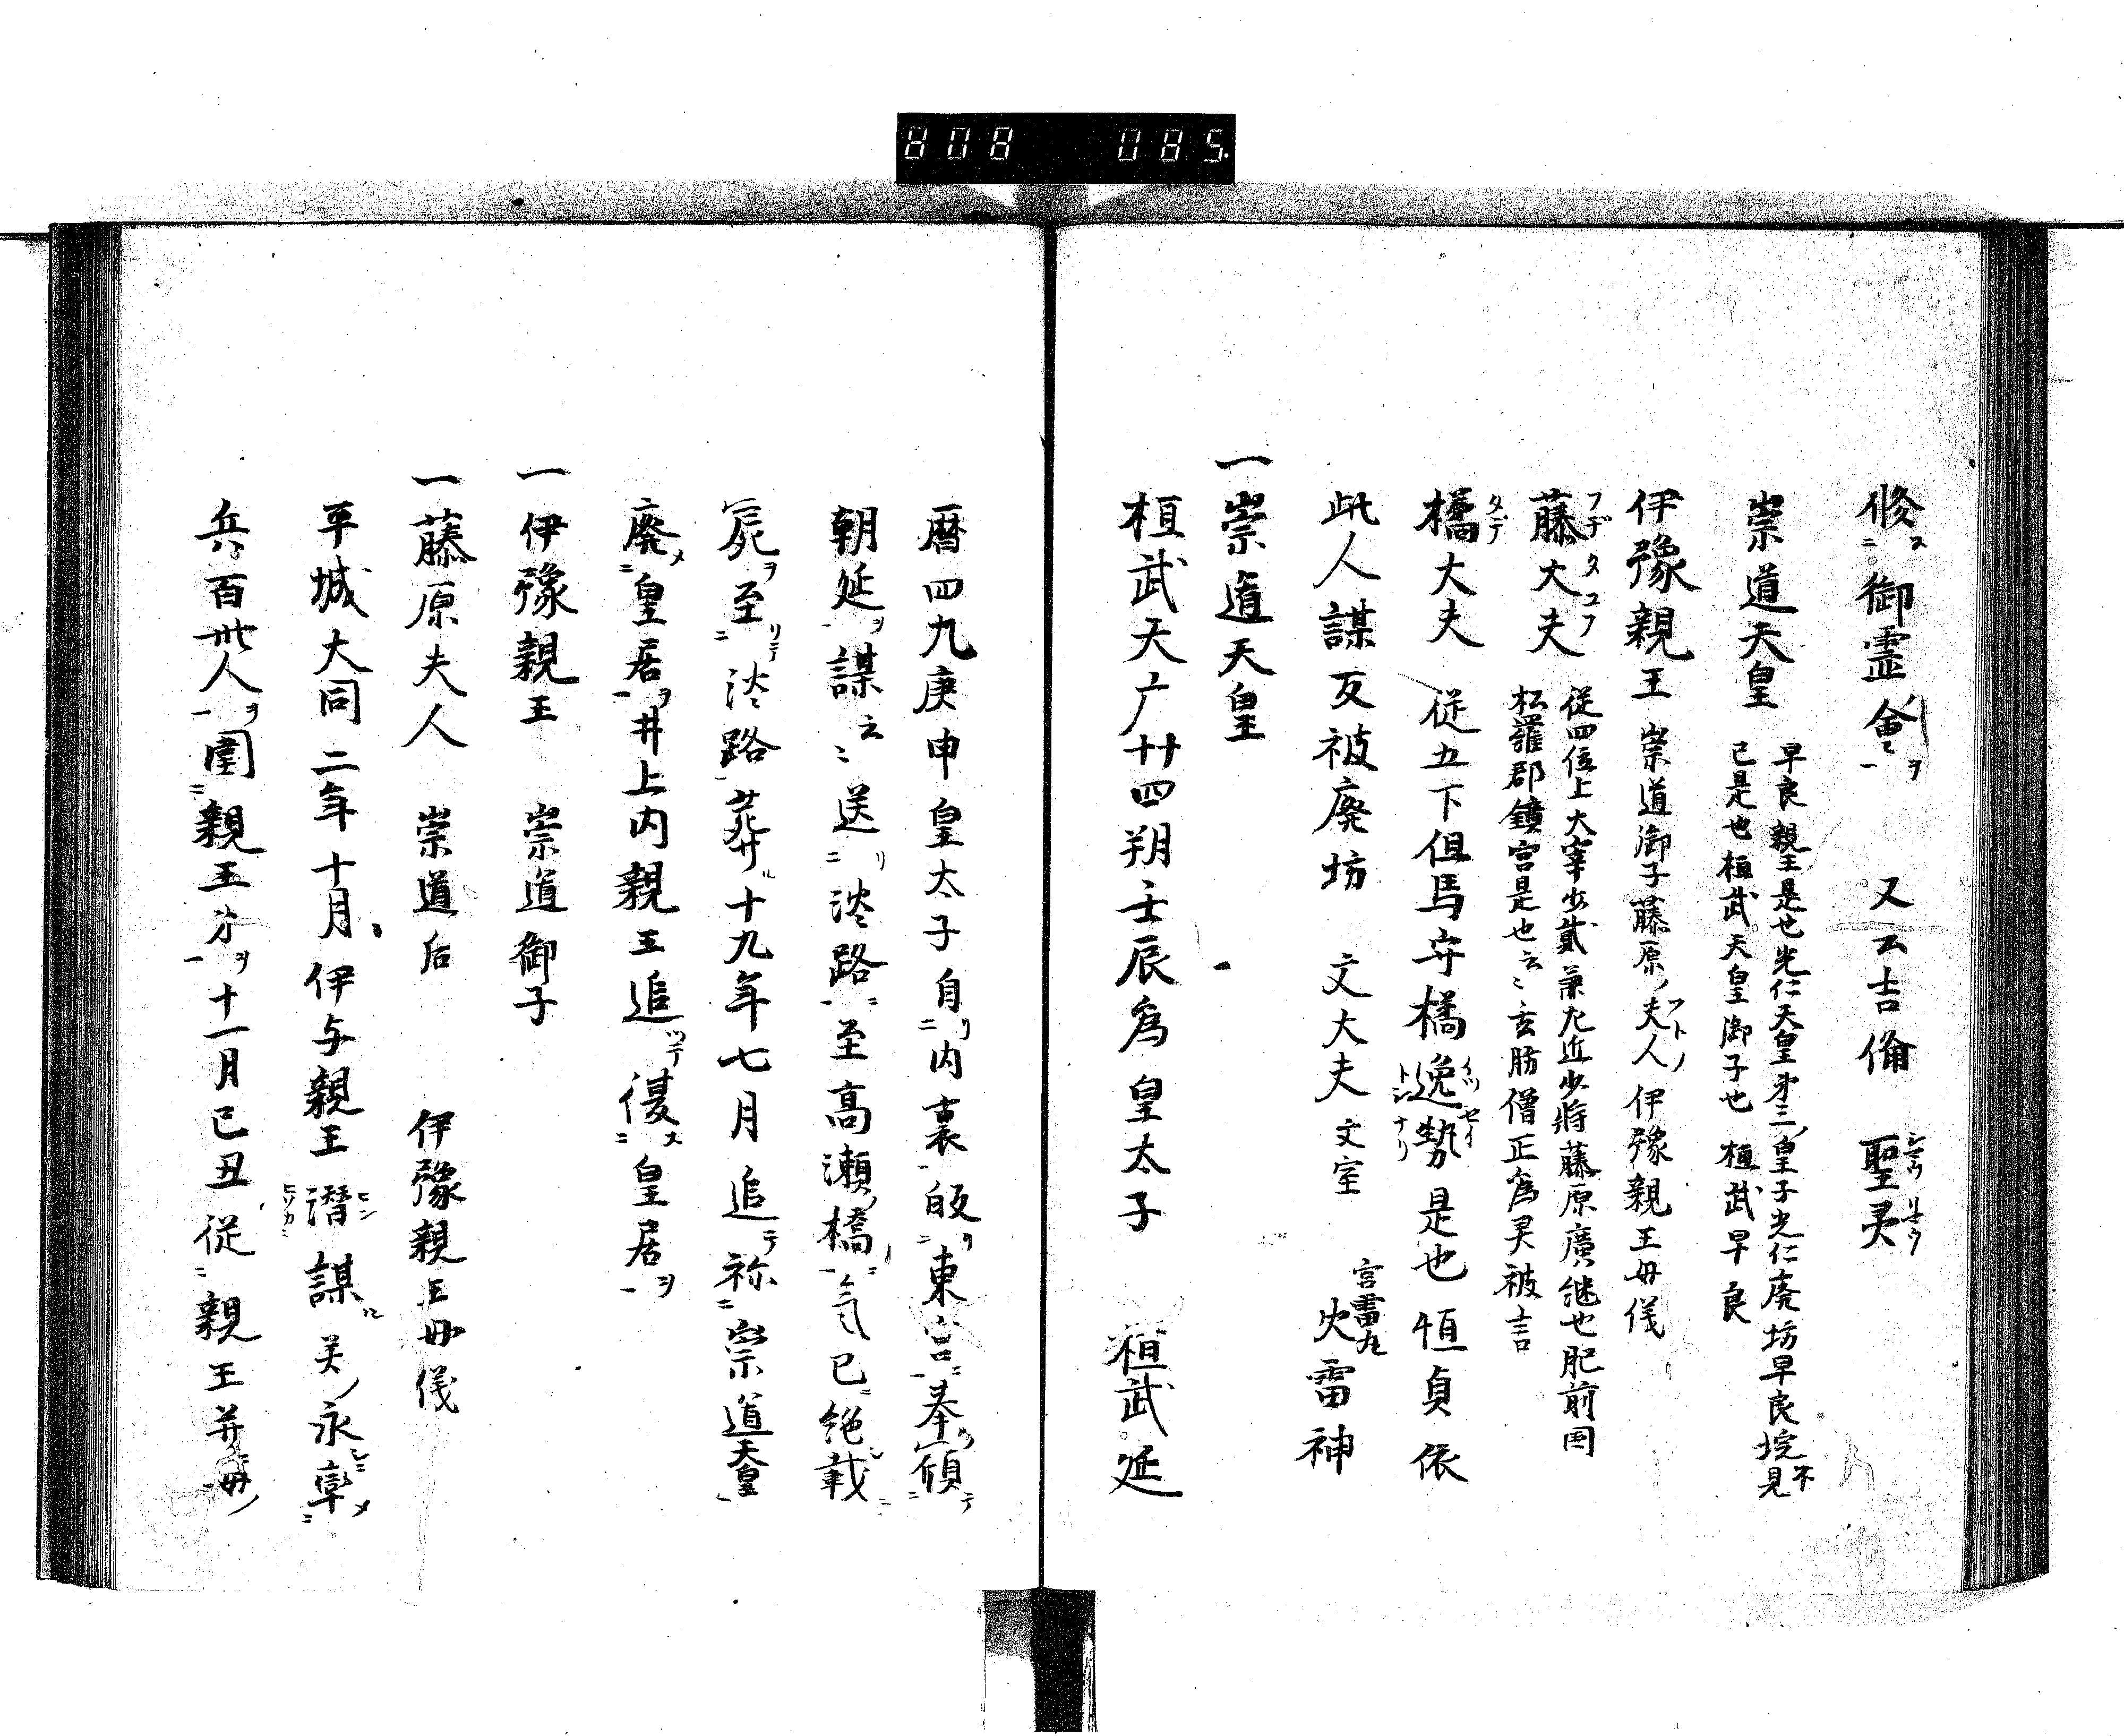 808 085
修御霊會 又云吉備 聖灵
崇道天皇 早良親王是也光仁天皇第三皇子光仁廃坊早良
已是也桓武天皇御子也桓武早良
伊豫親王 崇道御子藤原夫人伊豫親王母儀
藤大夫 従四位上大宰少貳兼左近少將藤原廣継也肥前国
松羅郡鏡宮是也云々玄肪僧正為灵被吉
橘大夫 従五下但馬守橘逸勢是也恒貞依
此人謀反被廃坊 文大夫 文室 火雷神
一崇道天皇
桓武天广廿四朔壬辰為皇太子 桓武延
暦四九庚申皇太子自内裏皈東宮奉
朝廷謀云々送淡路至高瀬橋气已絶載
屍至淡路葬十九年七月追称崇道天皇
廃皇居井上内親王追復皇居
一伊豫親王 崇道御子
一藤原夫人 崇道后 伊豫親王母儀
平城大同二年十月伊与親王潜謀
兵百卅人圍親王㐧十一月己丑従親王并母